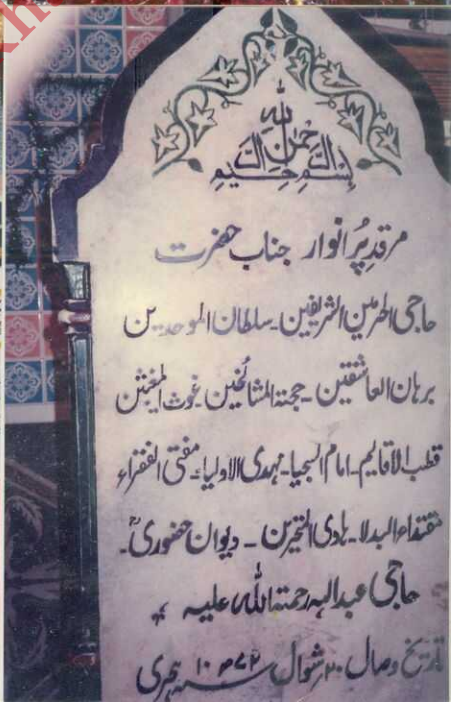 بسم الله الرحمن الرحیم
مرقد پُر انوار جناب حضرت
حاجی الحرمین الشریفین ۔ سلطان الموحدین
برہان العاشقین ۔ حجتہ المشائخین ۔ غوث المغیثین
قطب الاقالیم ۔ امام النجبا ۔ مہدی الاولیاء ۔ مفتی الفقراء
مقتداء البدلا ۔ ہادی المتحیرین ۔ دیوان حضوریؒ ۔
حاجی عبداللہ رحمتہ اللہ علیہ
تاریخ وصال ۲۰ شوال ہجری